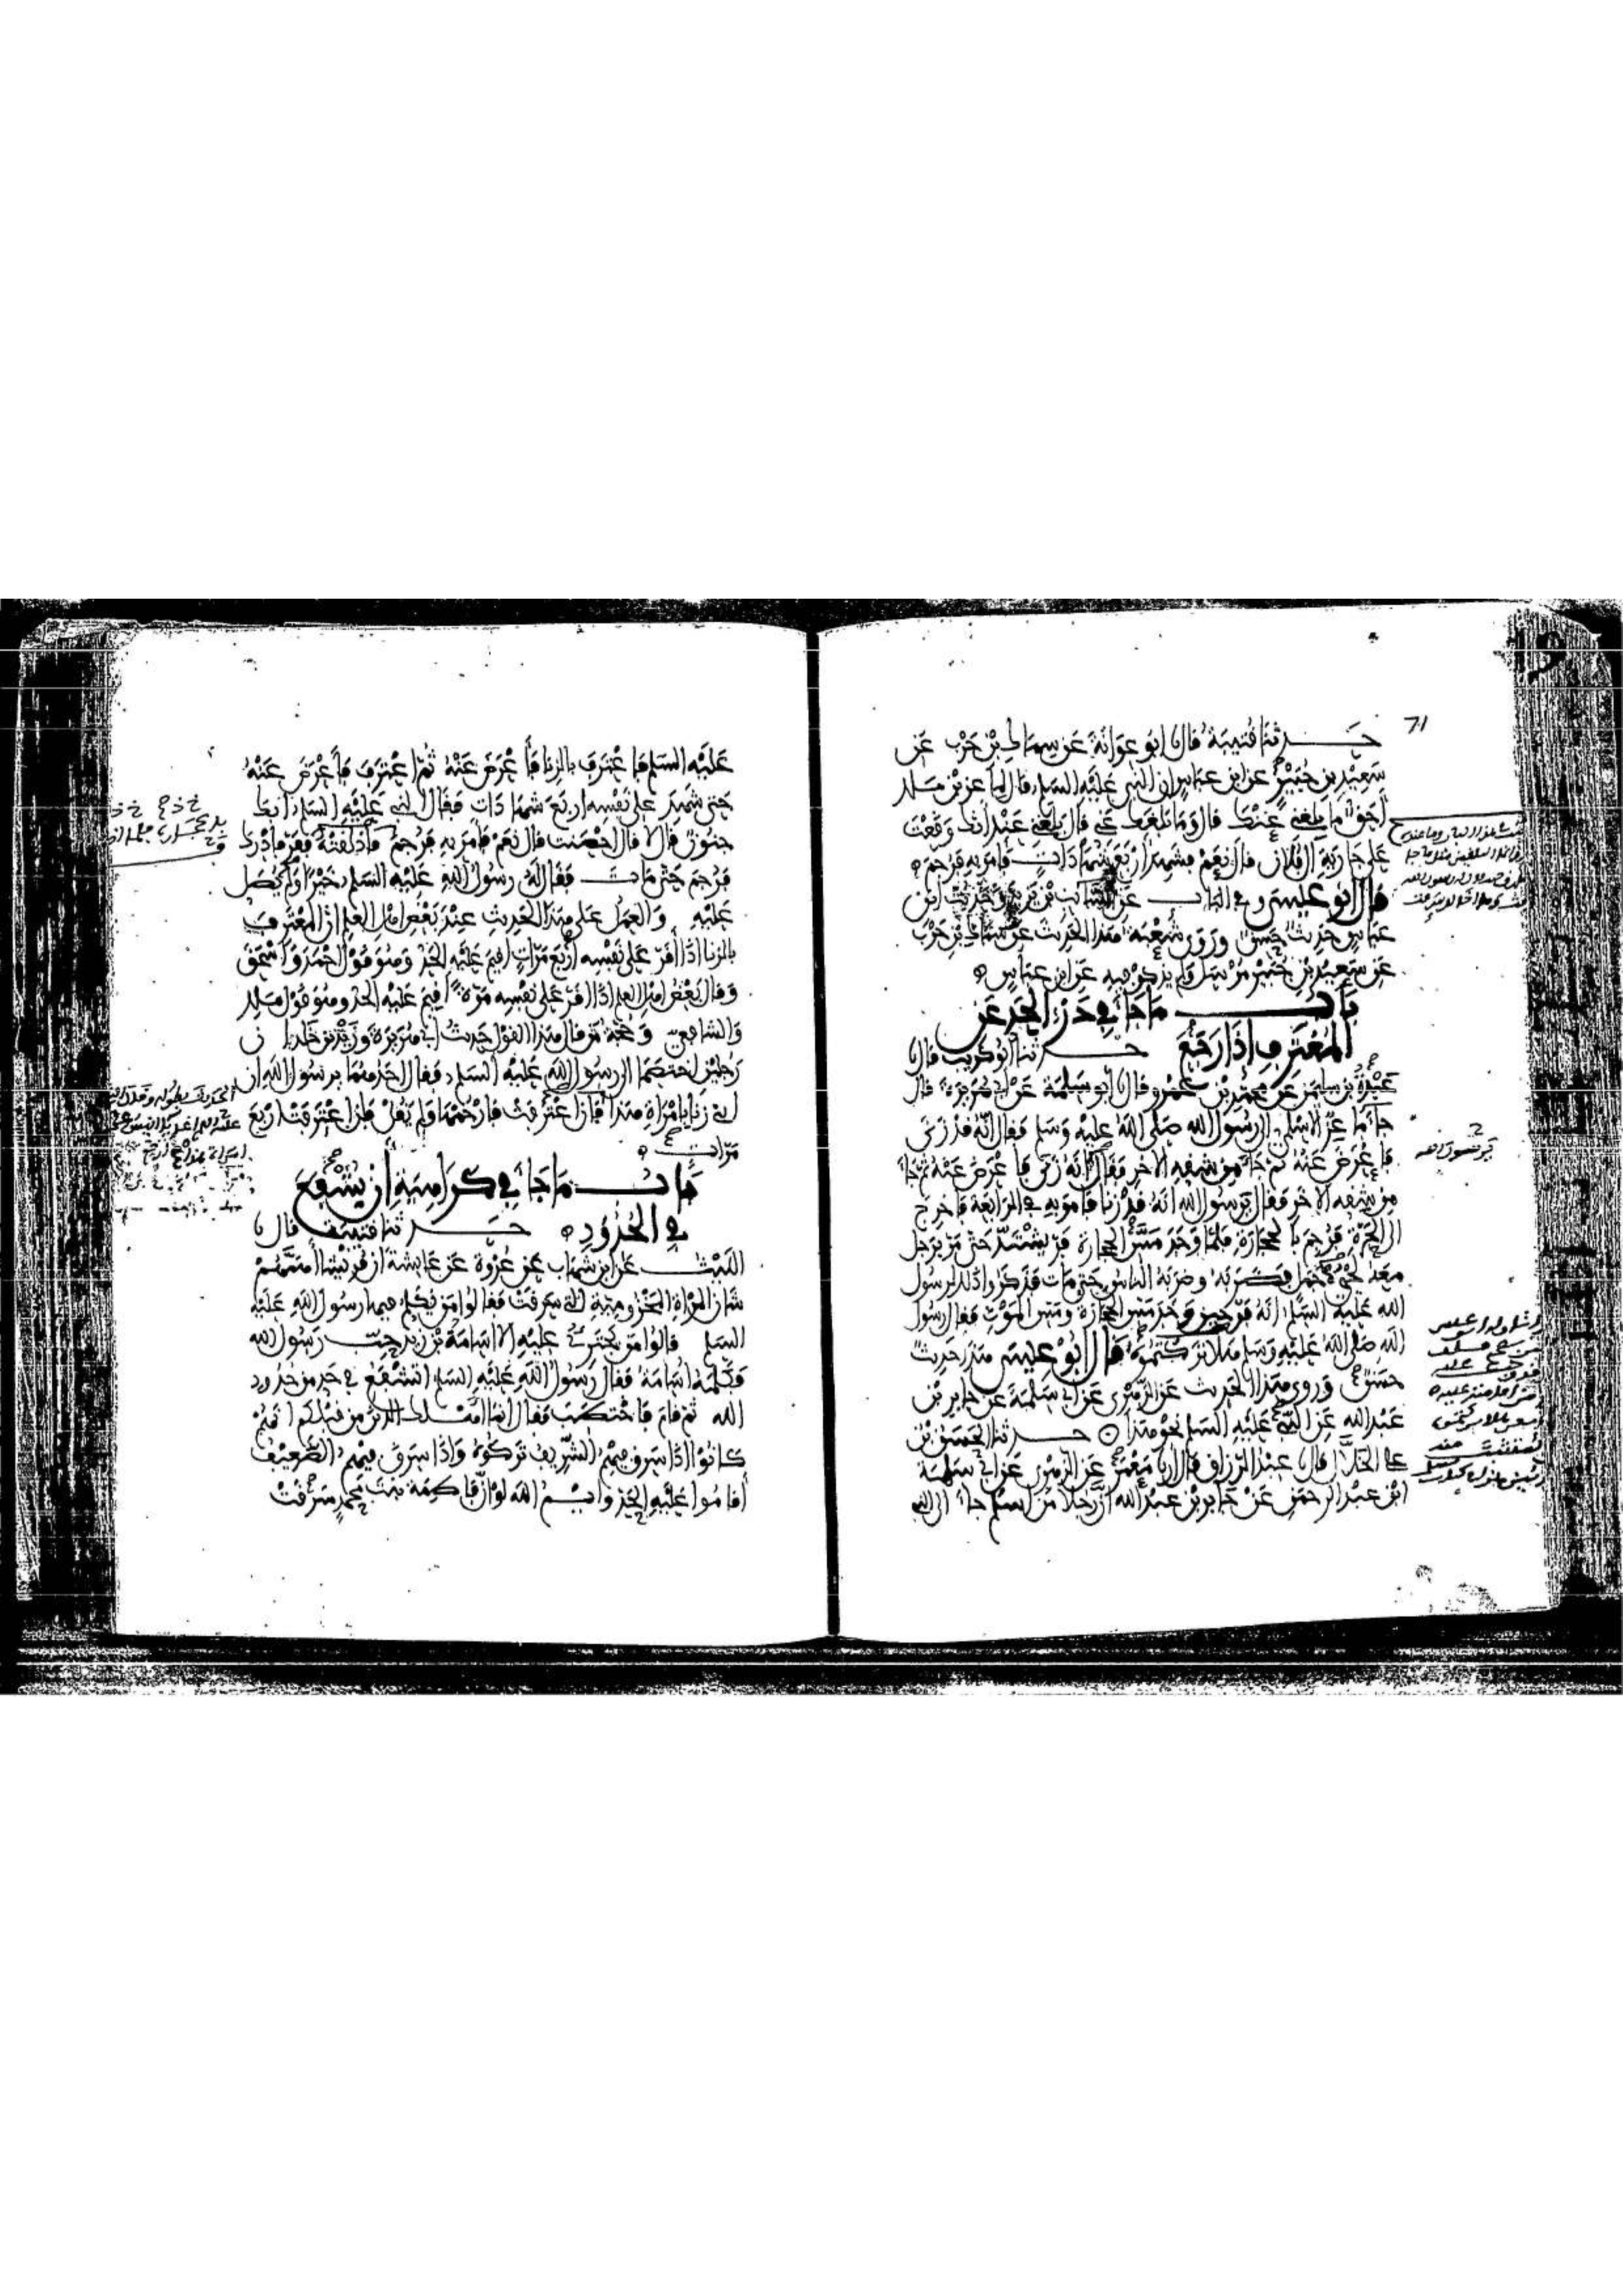 71
حدثنا قتيبة قال نا ابو عوانة عن سماك بن حرب عن
سعيد بن جبير عن ابن عباس ان النبي عليه السلم قال لماعز بن ملك
احق ما بلغني عنك قال وما بلغك عني قال بلغني عنك انك وقعت
على جارية ال فلان قال نعم فشهد اربع شهادات فامر به فرجم
قال ابو عيسى وفي الباب عن السائب بن يزيد وحديث ابن
عباس حديث حسن وروى شعبة هذا الحديث عن سماك بن حرب
عن سعيد بن جبير مرسل ولم يذكر فيه عن ابن عباس
باب ما جا في درء الحد عن
المعترف اذا رجع حدثنا ابو كريب قال نا
عبدة بن سليمن عن محمد بن عمرو قال نا ابو سلمة عن ابي هريرة قال
جا ماعز الاسلمي الى رسول الله صلى الله عليه وسلم فقال انه قد زنى
فاعرض عنه ثم جا من شقه الاخر فقال انه زنى فاعرض عنه ثم جا
من شقه الاخر فقال يرسول الله انه قد زنا فامر به في الرابعة فاخرج
الى الحرة فرجم بالحجارة فلما وجد مس الحجارة فر يشتد حتى مر برجل
معه لحي جمل فضربه وضربه الناس حتى مات فذكروا ذلك لرسول
الله عليه السلم انه فر حين وجد مس الحجارة ومس الموت فقال رسول
الله صلى الله عليه وسلم هلا تركتموه قال ابو عيسى هذا حديث
حسن وروي هذا الحديث عن الزهري عن ابي سلمة عن جابر بن
عبد الله عن النبي عليه السلم نحو هذا حدثنا الحسن بن
علي الخلال قال نا عبد الرزاق قال انا معمر عن الزهري عن ابي سلمة
ابن عبد الرحمن عن جابر بن عبد الله ان رجلا من اسلم جا الى النبي
يرسول الله
عليه السلم فاعترف بالزنا فاعرض عنه ثم اعترف فاعرض عنه
حتى شهد على نفسه اربع شهادات فقال النبي عليه السلم ابك
جنون قال لا قال احصنت قال نعم فامر به فرجم فلما اذلقته فر فادرك
فرجم حتى مات فقال له رسول الله عليه السلم خيرا ولم يصل
عليه والعمل على هذا الحديث عند بعض اهل العلم ان المعترف
بالزنا اذا اقر على نفسه اربع مرات اقيم عليه الحد وهو قول احمد واسحق
وقال بعض اهل العلم اذا اقر على نفسه مرة اقيم عليه الحد وهو قول ملك
والشافعي وحجة من قال هذا القول حديث ابي هريرة وزيد بن خلد ان
رجلين اختصما الى رسول الله عليه السلم فقال احدهما يرسول الله ان
ابني زنا بامراة هذا فان اعترفت فارجمها ولم يقل فان اعترفت اربع
مرات
باب ما جا في كراهية ان يشفع
في الحدود حدثنا قتيبة قال نا
الليث عن ابن شهاب عن عروة عن عايشة ان قريشا اهمهم
شان المراة المخزومية التي سرقت فقالوا من يكلم فيها رسول الله عليه
السلم قالوا من يجترئ عليه الا اسامة بن زيد حب رسول الله
فكلمه اسامة فقال رسول الله عليه السلم اتشفع في حد من حدود
الله ثم قام فاختطب فقال انما اهلك الذين من قبلكم انهم
كانوا اذا سرق فيهم الشريف تركوه واذا سرق فيهم الضعيف
اقاموا عليه الحد وايم الله لو ان فاطمة بنت محمد سرقت